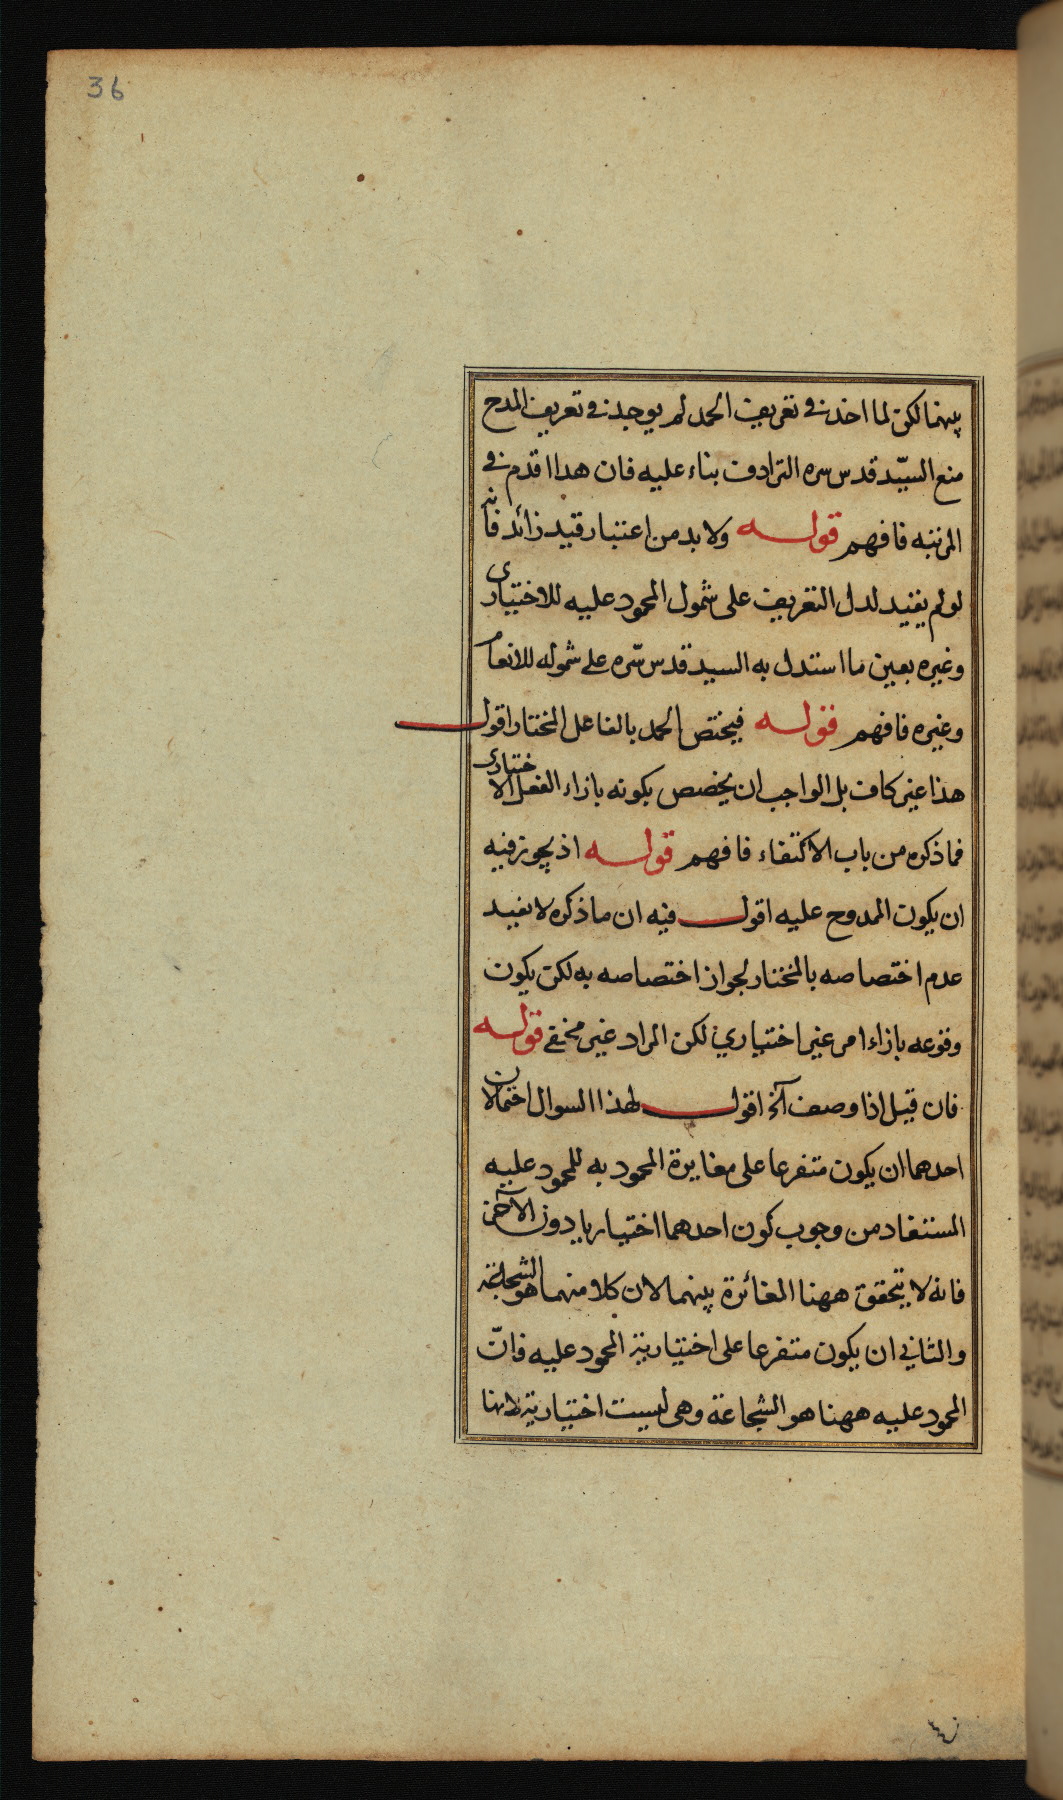 36
بينهما لكن لما اخذ في تعريف الحمد لم يوجد في تعريف المدح
منع السيّد قدس سره الترادف بناء عليه فان هذا اقدم في
المرتبه فافهم قوله ولا بد من اعتبار قيد زائد فانه
لو لم يقيد لدل التعريف على شمول المحمود عليه للاختياري
وغيره بعين ما استدل به السيد قدس سّره على شموله للانعام
وغيره فافهم قوله فيختص الحمد بالفاعل المختار اقول
هذا غير كاف بل الواجب ان يخصص بكونه بازاء الفعل الاختياري
فما ذكره من باب الاكتفاء فافهم قوله اذ يجوز فيه
ان يكون الممدوح عليه اقول فيه ان ما ذكره لا يفيد
عدم اختصاصه بالمختار لجواز اختصاصه به لكن يكون
وقوعه بازاء امر غير اختياري لكن المراد غير مخفي قوله
فان قيل اذا وصف آلخ اقول لهذا السوال احتمالان
احدهما ان يكون متفرعا على مغايرة المحمود به للمحمود عليه
المستفاد من وجوب كون احدهما اختياريا دون الآخر
فانه لا يتحقق ههنا المغائرة بينهما لان كلا منهما هو الشجاعة
والثاني ان يكون متفرعا على اختيارية المحمود عليه فانّ
المحمود عليه ههنا هو الشجاعة وهي ليست اختيارية لانها